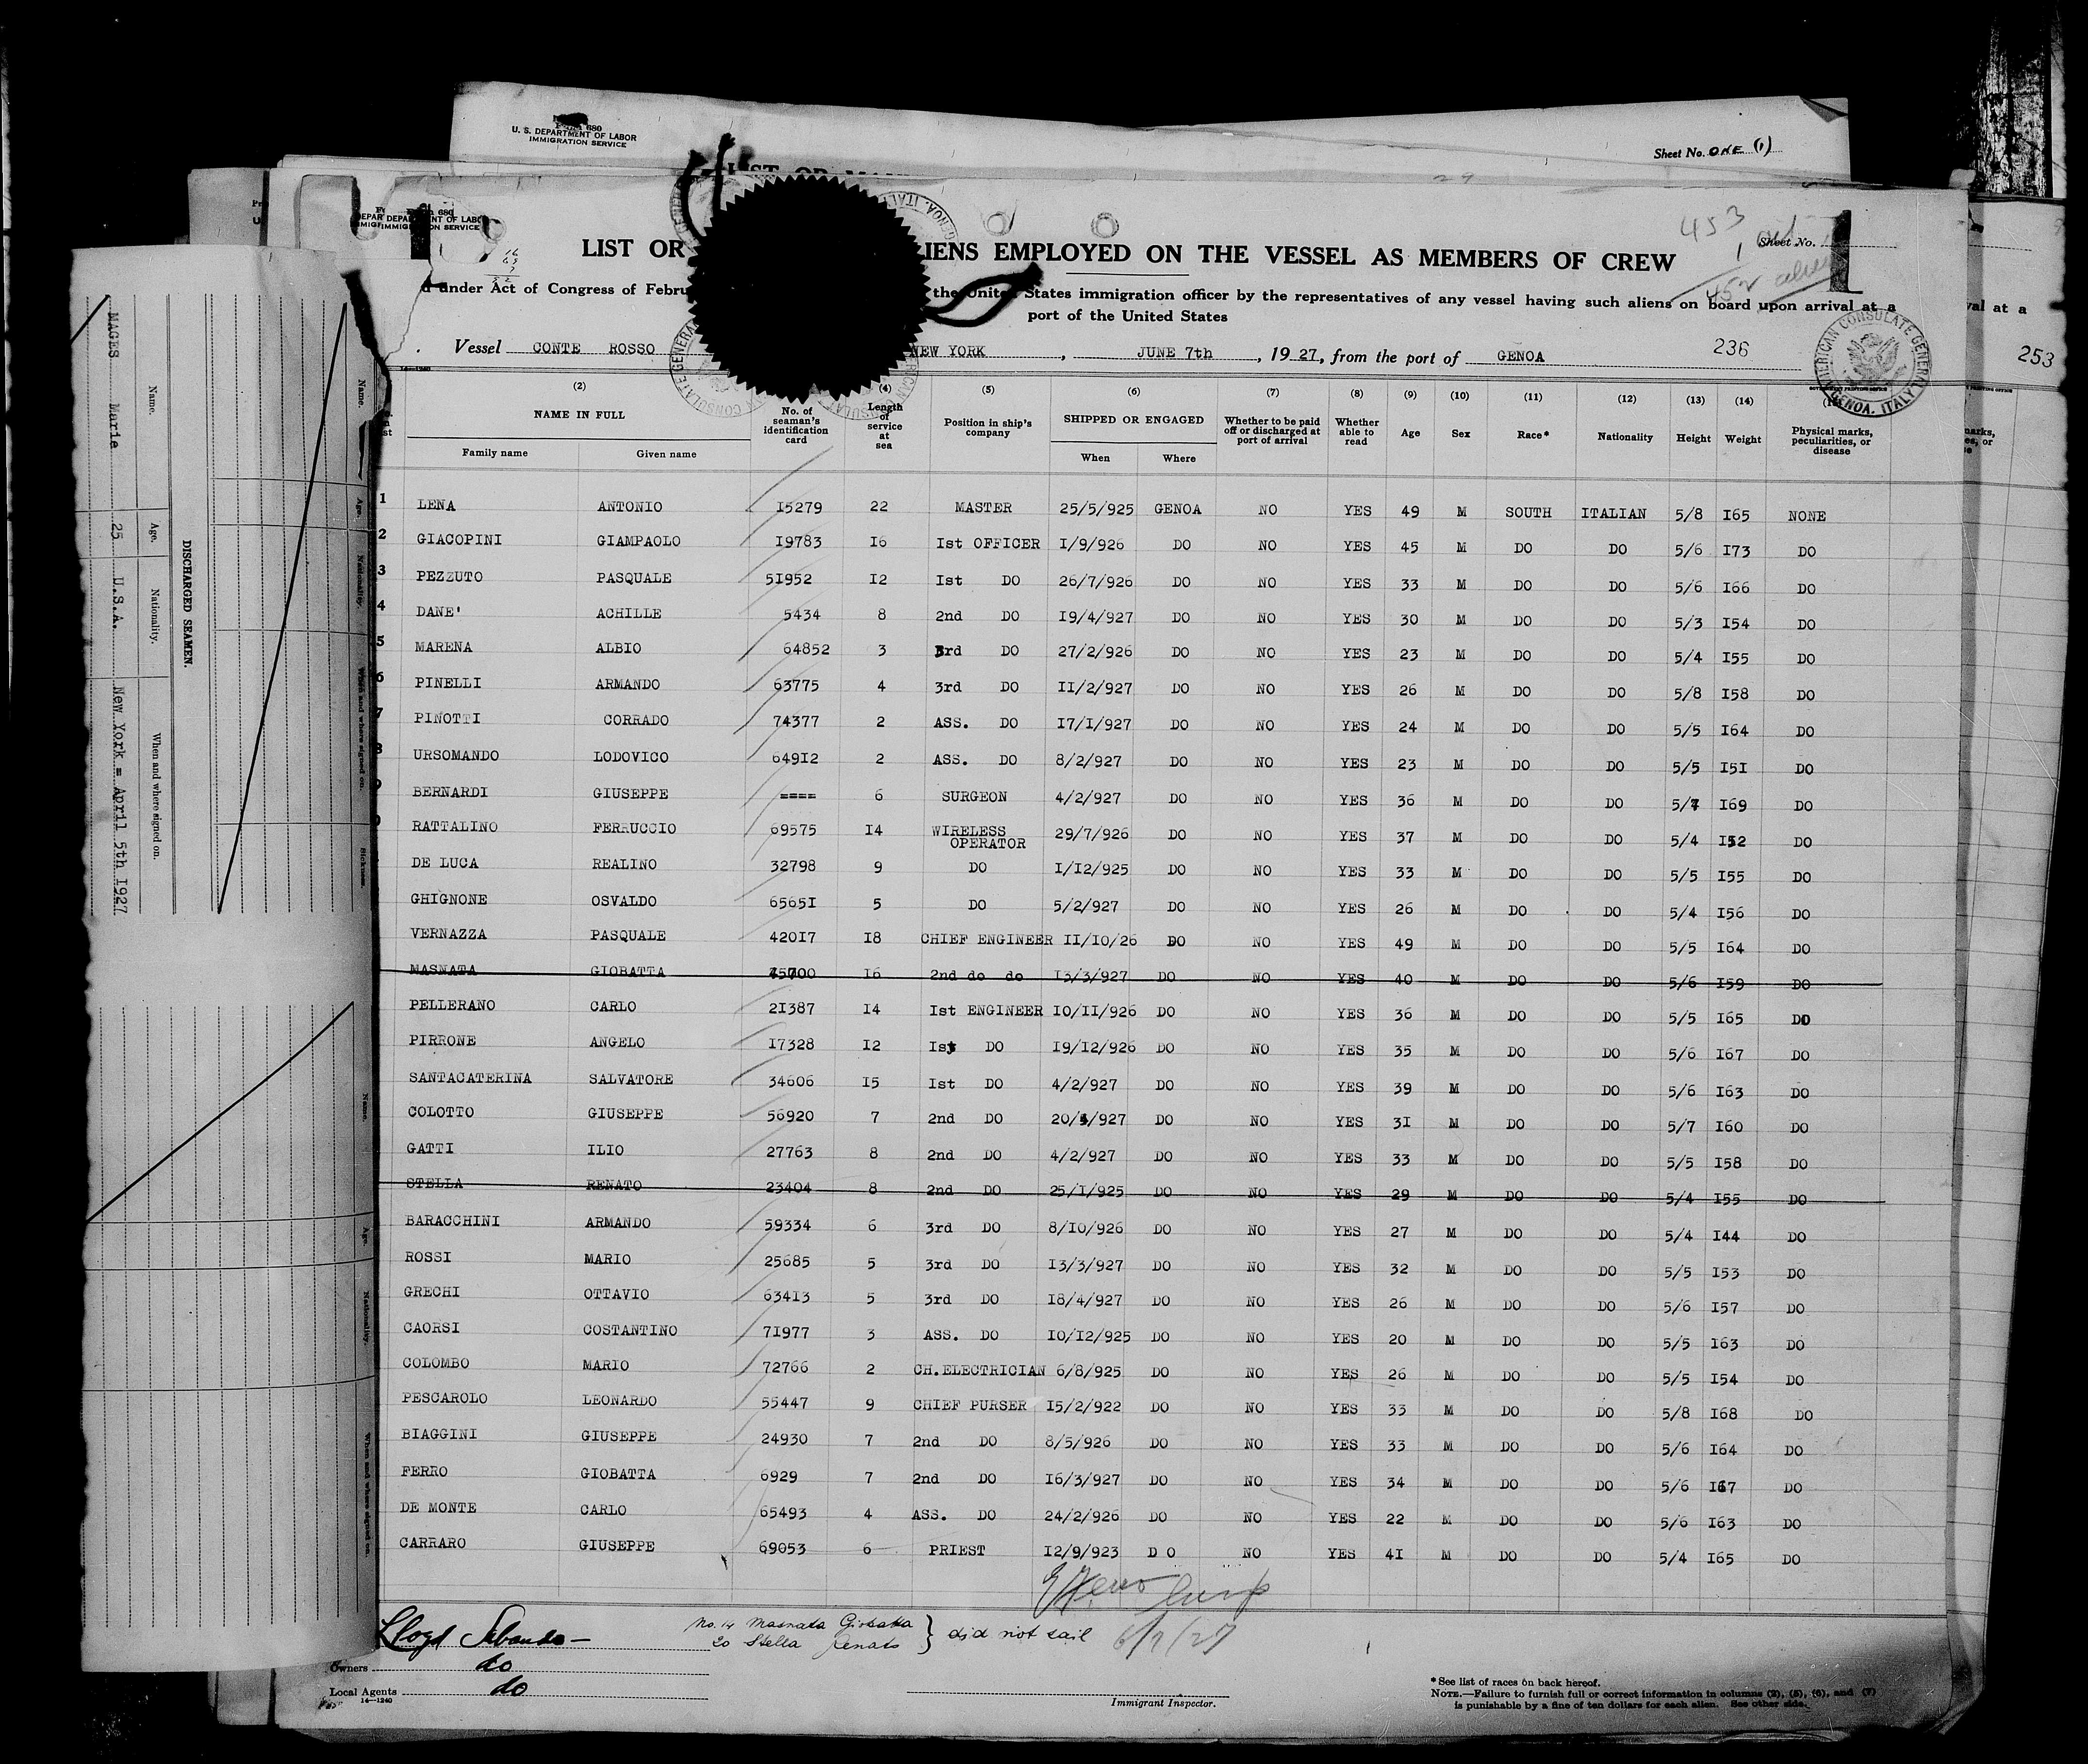 Form 680
U. S. DEPARTMENT OF LABOR
IMMIGRATION SERVICE
Sheet No. ONE (1)
DEPARTMENT OF LABOR
IMMIGRATION SERVICE
453
Sheet No.
LIST OR ALIENS EMPLOYED ON THE VESSEL AS MEMBERS OF CREW
under Act of Congress of Febru the United States immigration officer by the representatives of any vessel having such aliens on board upon arrival at a
port of the United States
val at a
Vessel CONTE ROSSO NEW YORK, JUNE 7th, 1927, from the port of GENOA 236
253
AMERICAN CONSULATE GENERAL
GENOA, ITALY
(2) (4) (5) (6) (7) (8) (9) (10) (11) (12) (13) (14)
NAME IN FULL
Family name Given name
No. of seaman's identification card
Length of service at sea
Position in ship's company
SHIPPED OR ENGAGED
When Where
Whether to be paid off or discharged at port of arrival
Whether able to read
Age
Sex
Race*
Nationality
Height
Weight
Physical marks, peculiarities, or disease
1 LENA ANTONIO I5279 22 MASTER 25/5/925 GENOA NO YES 49 M SOUTH ITALIAN 5/8 I65 NONE
2 GIACOPINI GIAMPAOLO I9783 I6 Ist OFFICER I/9/926 DO NO YES 45 M DO DO 5/6 I73 DO
3 PEZZUTO PASQUALE 5I952 I2 Ist DO 26/7/926 DO NO YES 33 M DO DO 5/6 I66 DO
4 DANE' ACHILLE 5434 8 2nd DO I9/4/927 DO NO YES 30 M DO DO 5/3 I54 DO
5 MARENA ALBIO 64852 3 3rd DO 27/2/926 DO NO YES 23 M DO DO 5/4 I55 DO
6 PINELLI ARMANDO 63775 4 3rd DO II/2/927 DO NO YES 26 M DO DO 5/8 I58 DO
7 PINOTTI CORRADO 74377 2 ASS. DO I7/I/927 DO NO YES 24 M DO DO 5/5 I64 DO
8 URSOMANDO LODOVICO 649I2 2 ASS. DO 8/2/927 DO NO YES 23 M DO DO 5/5 I5I DO
BERNARDI GIUSEPPE ==== 6 SURGEON 4/2/927 DO NO YES 36 M DO DO 5/7 I69 DO
RATTALINO FERRUCCIO 69575 I4 WIRELESS OPERATOR 29/7/926 DO NO YES 37 M DO DO 5/4 I52 DO
DE LUCA REALINO 32798 9 DO I/I2/925 DO NO YES 33 M DO DO 5/5 I55 DO
GHIGNONE OSVALDO 6565I 5 DO 5/2/927 DO NO YES 26 M DO DO 5/4 I56 DO
VERNAZZA PASQUALE 420I7 I8 CHIEF ENGINEER II/I0/26 DO NO YES 49 M DO DO 5/5 I64 DO
MASNATA GIOBATTA I6 2nd do do I3/3/927 DO NO YES 40 M DO DO 5/6 I59 DO
PELLERANO CARLO 2I387 I4 Ist ENGINEER I0/II/926 DO NO YES 36 M DO DO 5/5 I65 DO
PIRRONE ANGELO I7328 I2 Ist DO I9/I2/926 DO NO YES 35 M DO DO 5/6 I67 DO
SANTACATERINA SALVATORE 34606 I5 Ist DO 4/2/927 DO NO YES 39 M DO DO 5/6 I63 DO
COLOTTO GIUSEPPE 56920 7 2nd DO DO NO YES 3I M DO DO 5/7 I60 DO
GATTI ILIO 27763 8 2nd DO 4/2/927 DO NO YES 33 M DO DO 5/5 I58 DO
STELLA RENATO 23404 8 2nd DO 25/I/925 DO NO YES 29 M DO DO 5/4 I55 DO
BARACCHINI ARMANDO 59334 6 3rd DO 8/I0/926 DO NO YES 27 M DO DO 5/4 I44 DO
ROSSI MARIO 25685 5 3rd DO I3/3/927 DO NO YES 32 M DO DO 5/5 I53 DO
GRECHI OTTAVIO 634I3 5 3rd DO I8/4/927 DO NO YES 26 M DO DO 5/6 I57 DO
CAORSI COSTANTINO 7I977 3 ASS. DO I0/I2/925 DO NO YES 20 M DO DO 5/5 I63 DO
COLOMBO MARIO 72766 2 CH.ELECTRICIAN 6/8/925 DO NO YES 26 M DO DO 5/5 I54 DO
PESCAROLO LEONARDO 55447 9 CHIEF PURSER I5/2/922 DO NO YES 33 M DO DO 5/8 I68 DO
BIAGGINI GIUSEPPE 24930 7 2nd DO 8/5/926 DO NO YES 33 M DO DO 5/6 I64 DO
FERRO GIOBATTA 6929 7 2nd DO I6/3/927 DO NO YES 34 M DO DO 5/6 I67 DO
DE MONTE CARLO 65493 4 ASS. DO 24/2/926 DO NO YES 22 M DO DO 5/6 I63 DO
CARRARO GIUSEPPE 69053 6 PRIEST I2/9/923 D O NO YES 4I M DO DO 5/4 I65 DO
Lloyd Sabaudo
No. 14 Masnata Giobatta
20 Stella Renato } did not sail
6/7/27
Owners do
Local Agents do
14—1240
Immigrant Inspector.
* See list of races on back hereof.
NOTE.—Failure to furnish full or correct information in columns (2), (5), (6), and (7)
is punishable by a fine of ten dollars for each alien. See other side.
DISCHARGED SEAMEN.
Name. Age. Nationality. When and where signed on.
MAGES Marie 25 U.S.A. New York = April 5th I927
Name. Age. Nationality. When and where signed on. Sickness.
Name Age. Nationality. When and where signed on.